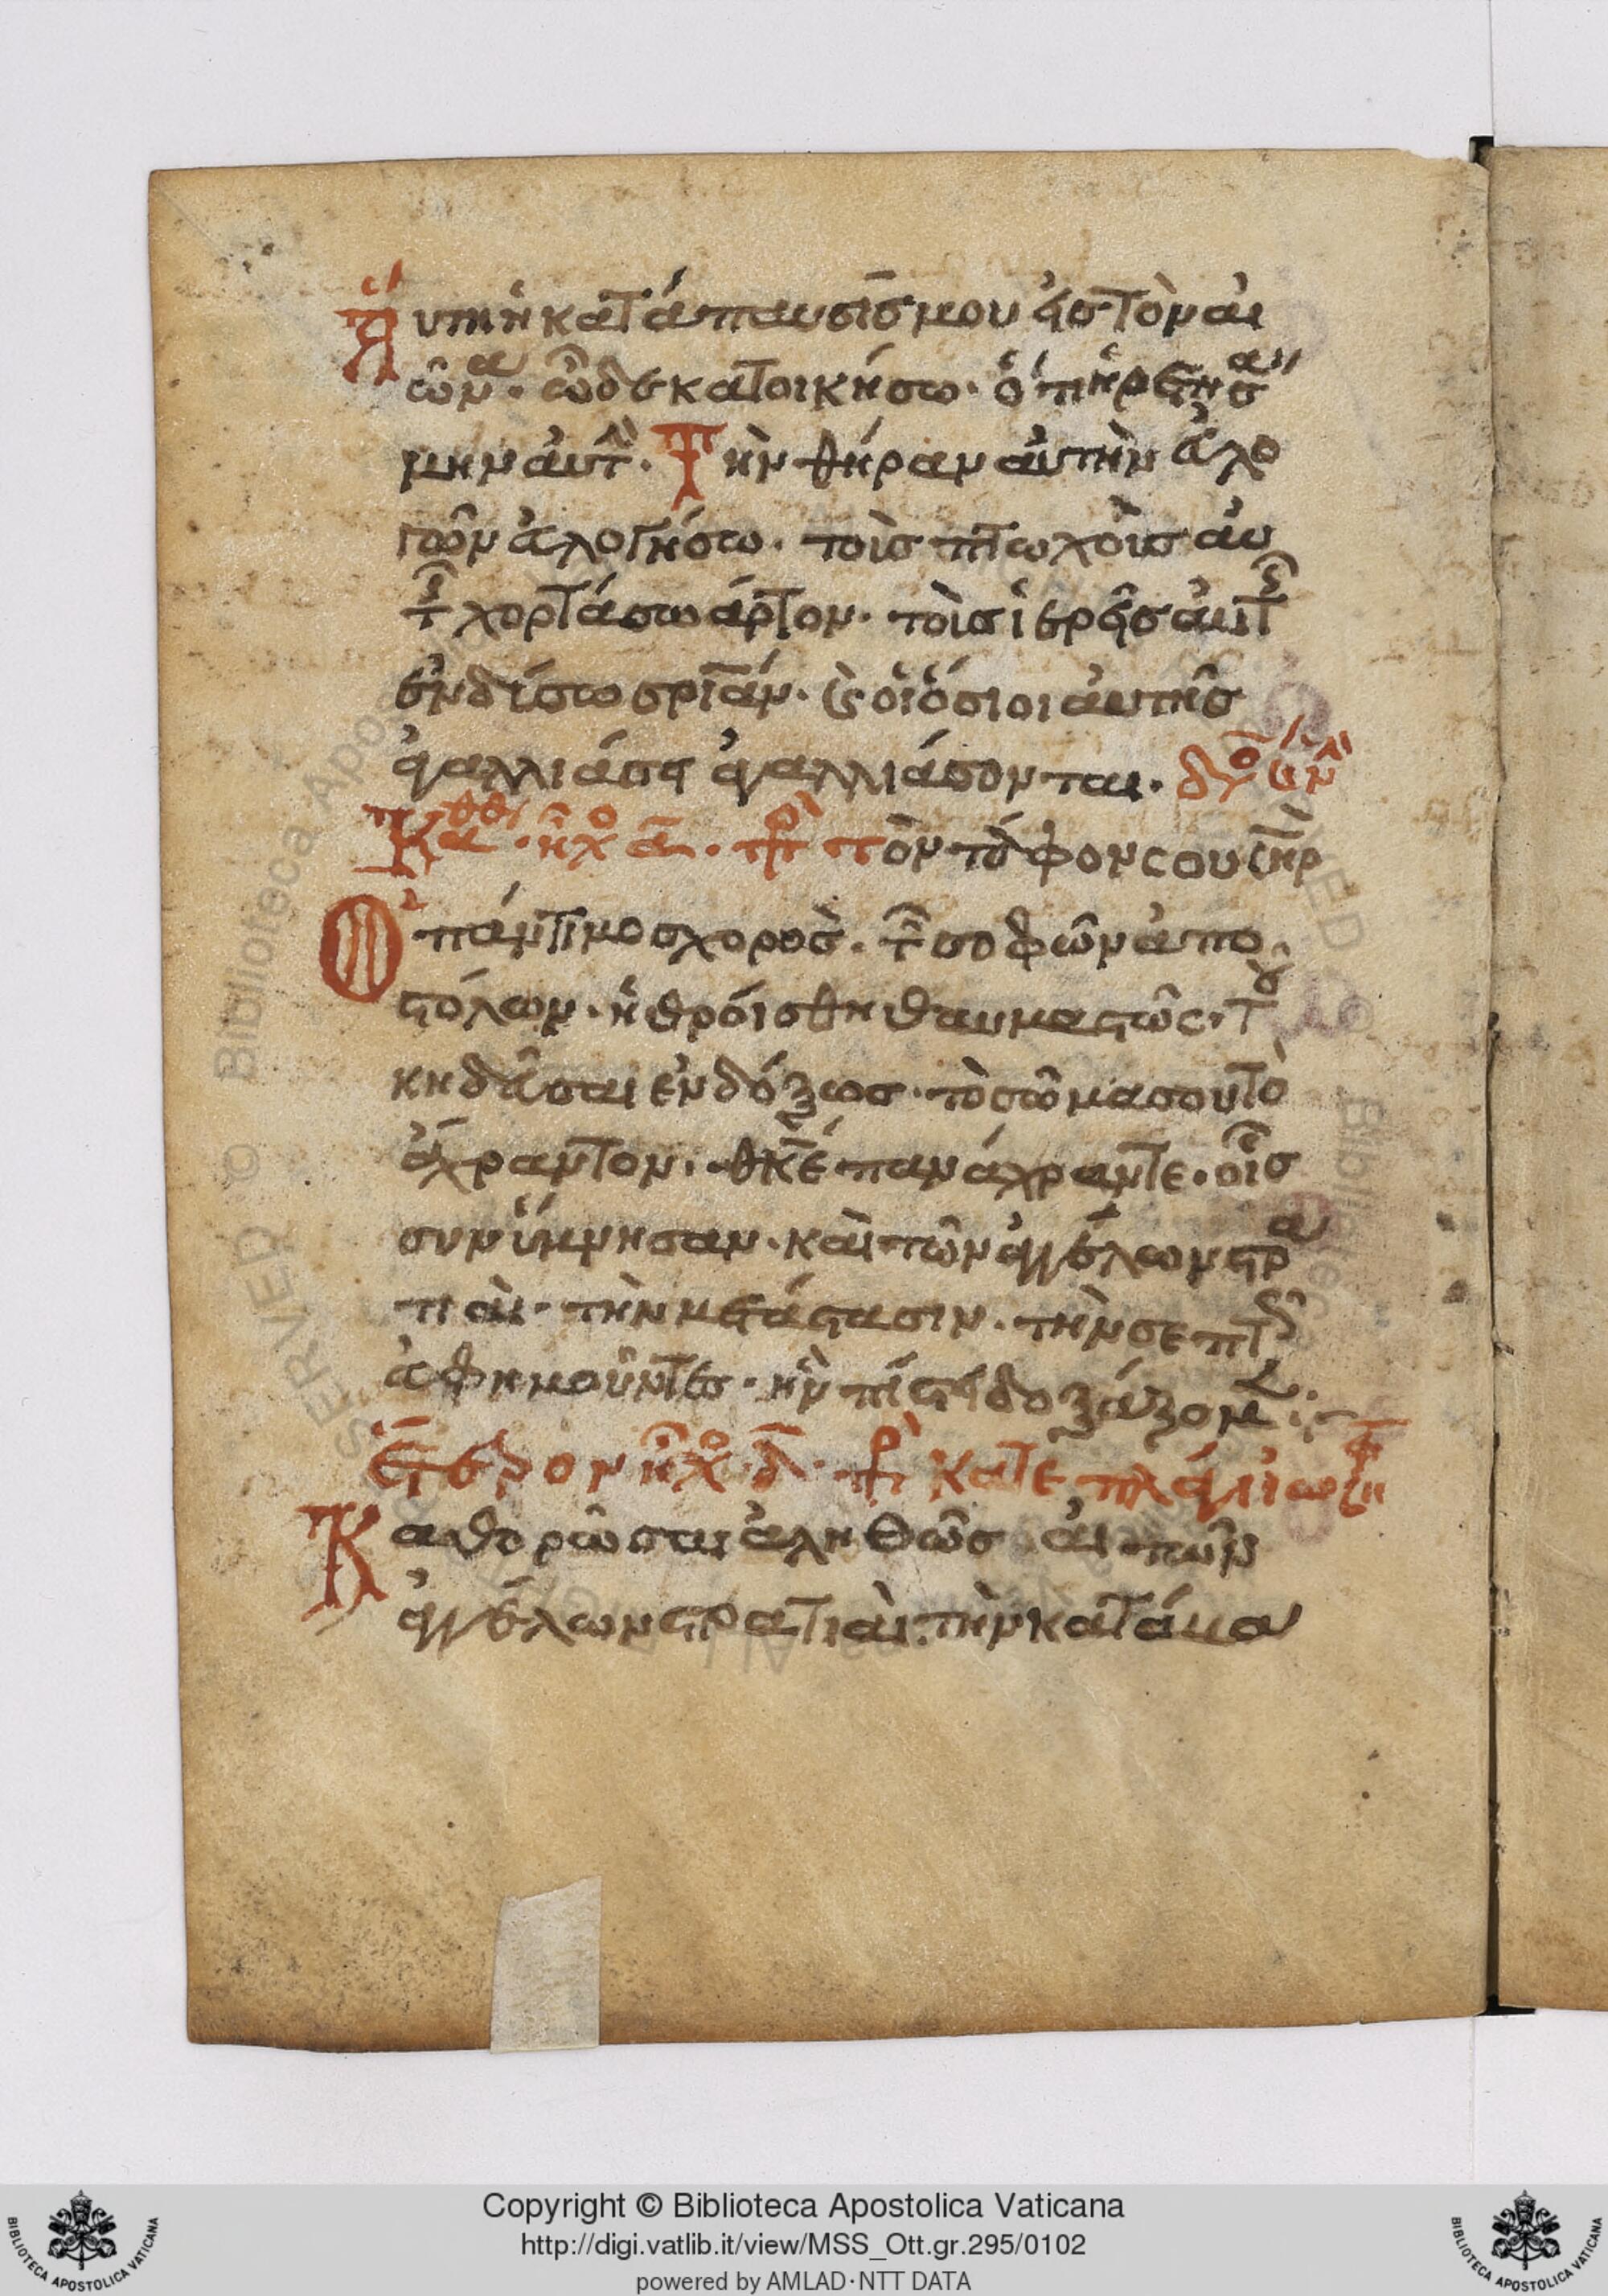 Αὕτη ἡ κατάπαυσίς μου εἰς τὸν αἰ
ῶνα. ὧδε κατοικήσω. ὅτι ἡρετησά
μην αὐτὴν. Τὴν θήραν αὐτὴν ἐυλο
γῶν ἐυλογήσω. τοὺς πτωχοὺς αὐ
τῆς χορτάσω ἄρτον. τοὺς ἱερεῖς αὐτῆς
ἐνδύσω σρίαν. καὶ οἱ ὅσιοι αὐτῆς
ἀγαλλιάσει ἀγαλλιάσονται. δόξα καὶ νῦν
Κάθισμα. ἦχος α. πρὸς τὸν τάφον σου σῆρ
Ὁ πάντιμος χορὸς. τῶν σοφῶν ἀπο
στόλων. ἠθροίσθη θαυμαστῶς. τοῦ
κηδεῦσαι ἐνδόξως. τὸ σῶμα σου τὸ
ἄχραντον. θκε πανάχραντε. οἷς
συνύμνησαν. καὶ τῶν ἀγγέλων στρα
τιαὶ. τὴν μετάστασιν. τὴν σεπτῶς
εὐφημοῦντες. ἣν πίστει δοξάζομεν
ἕτερον ἦχος δ. πρὸς κατεπλάγη ἰωσὴφ
Καθορῶσαι ἀληθῶς αἱ τῶν
ἀγγέλων στρατιαὶ. τὴν κατάμα
Copyright © Biblioteca Apostolica Vaticana
http://digi.vatlib.it/view/MSS_Ott.gr.295/0102
powered by AMLAD·NTT DATA